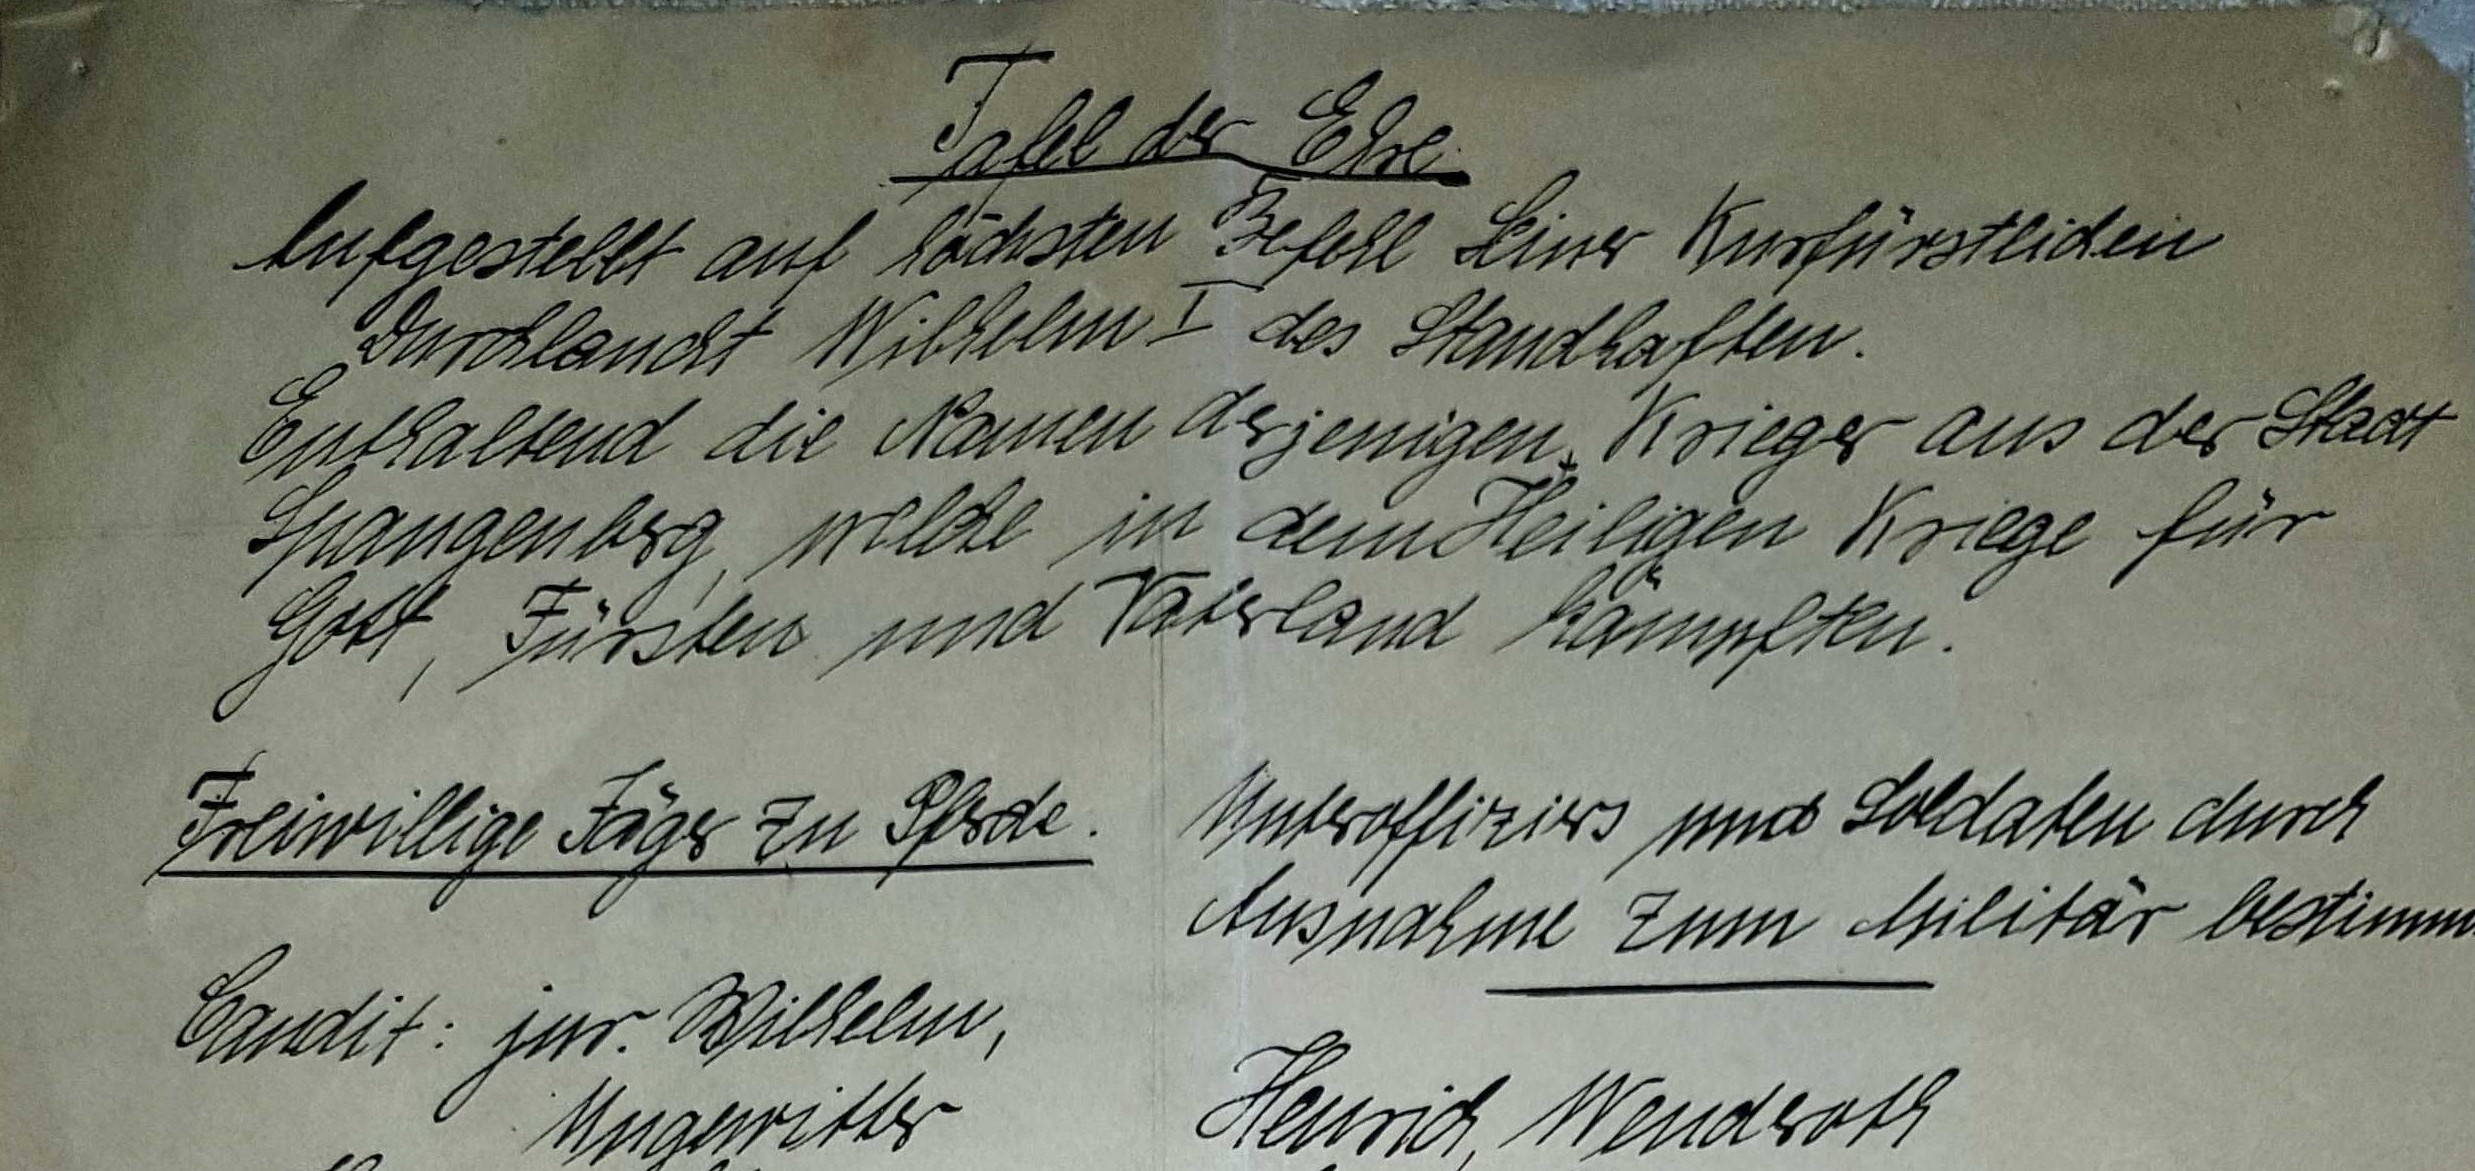 Tafel der Ehre
Aufgestellt auf höchsten Befehl Seiner Kurfürstlichen
Durchlaucht Wilhelm I des Standhaften.
Enthaltend die Namen derjenigen Krieger aus der Stadt
Spangenberg, welche in dem Heiligen Kriege für
Gott, Fürsten und Vaterland kämpften.
Freiwillige Jäger zu Pferde.
Candit: jur. Wilhelm,
Ungewitter
Unteroffiziers und Soldaten durch
Ausnahme zum Militär bestimm
Henrich, Wenderoth